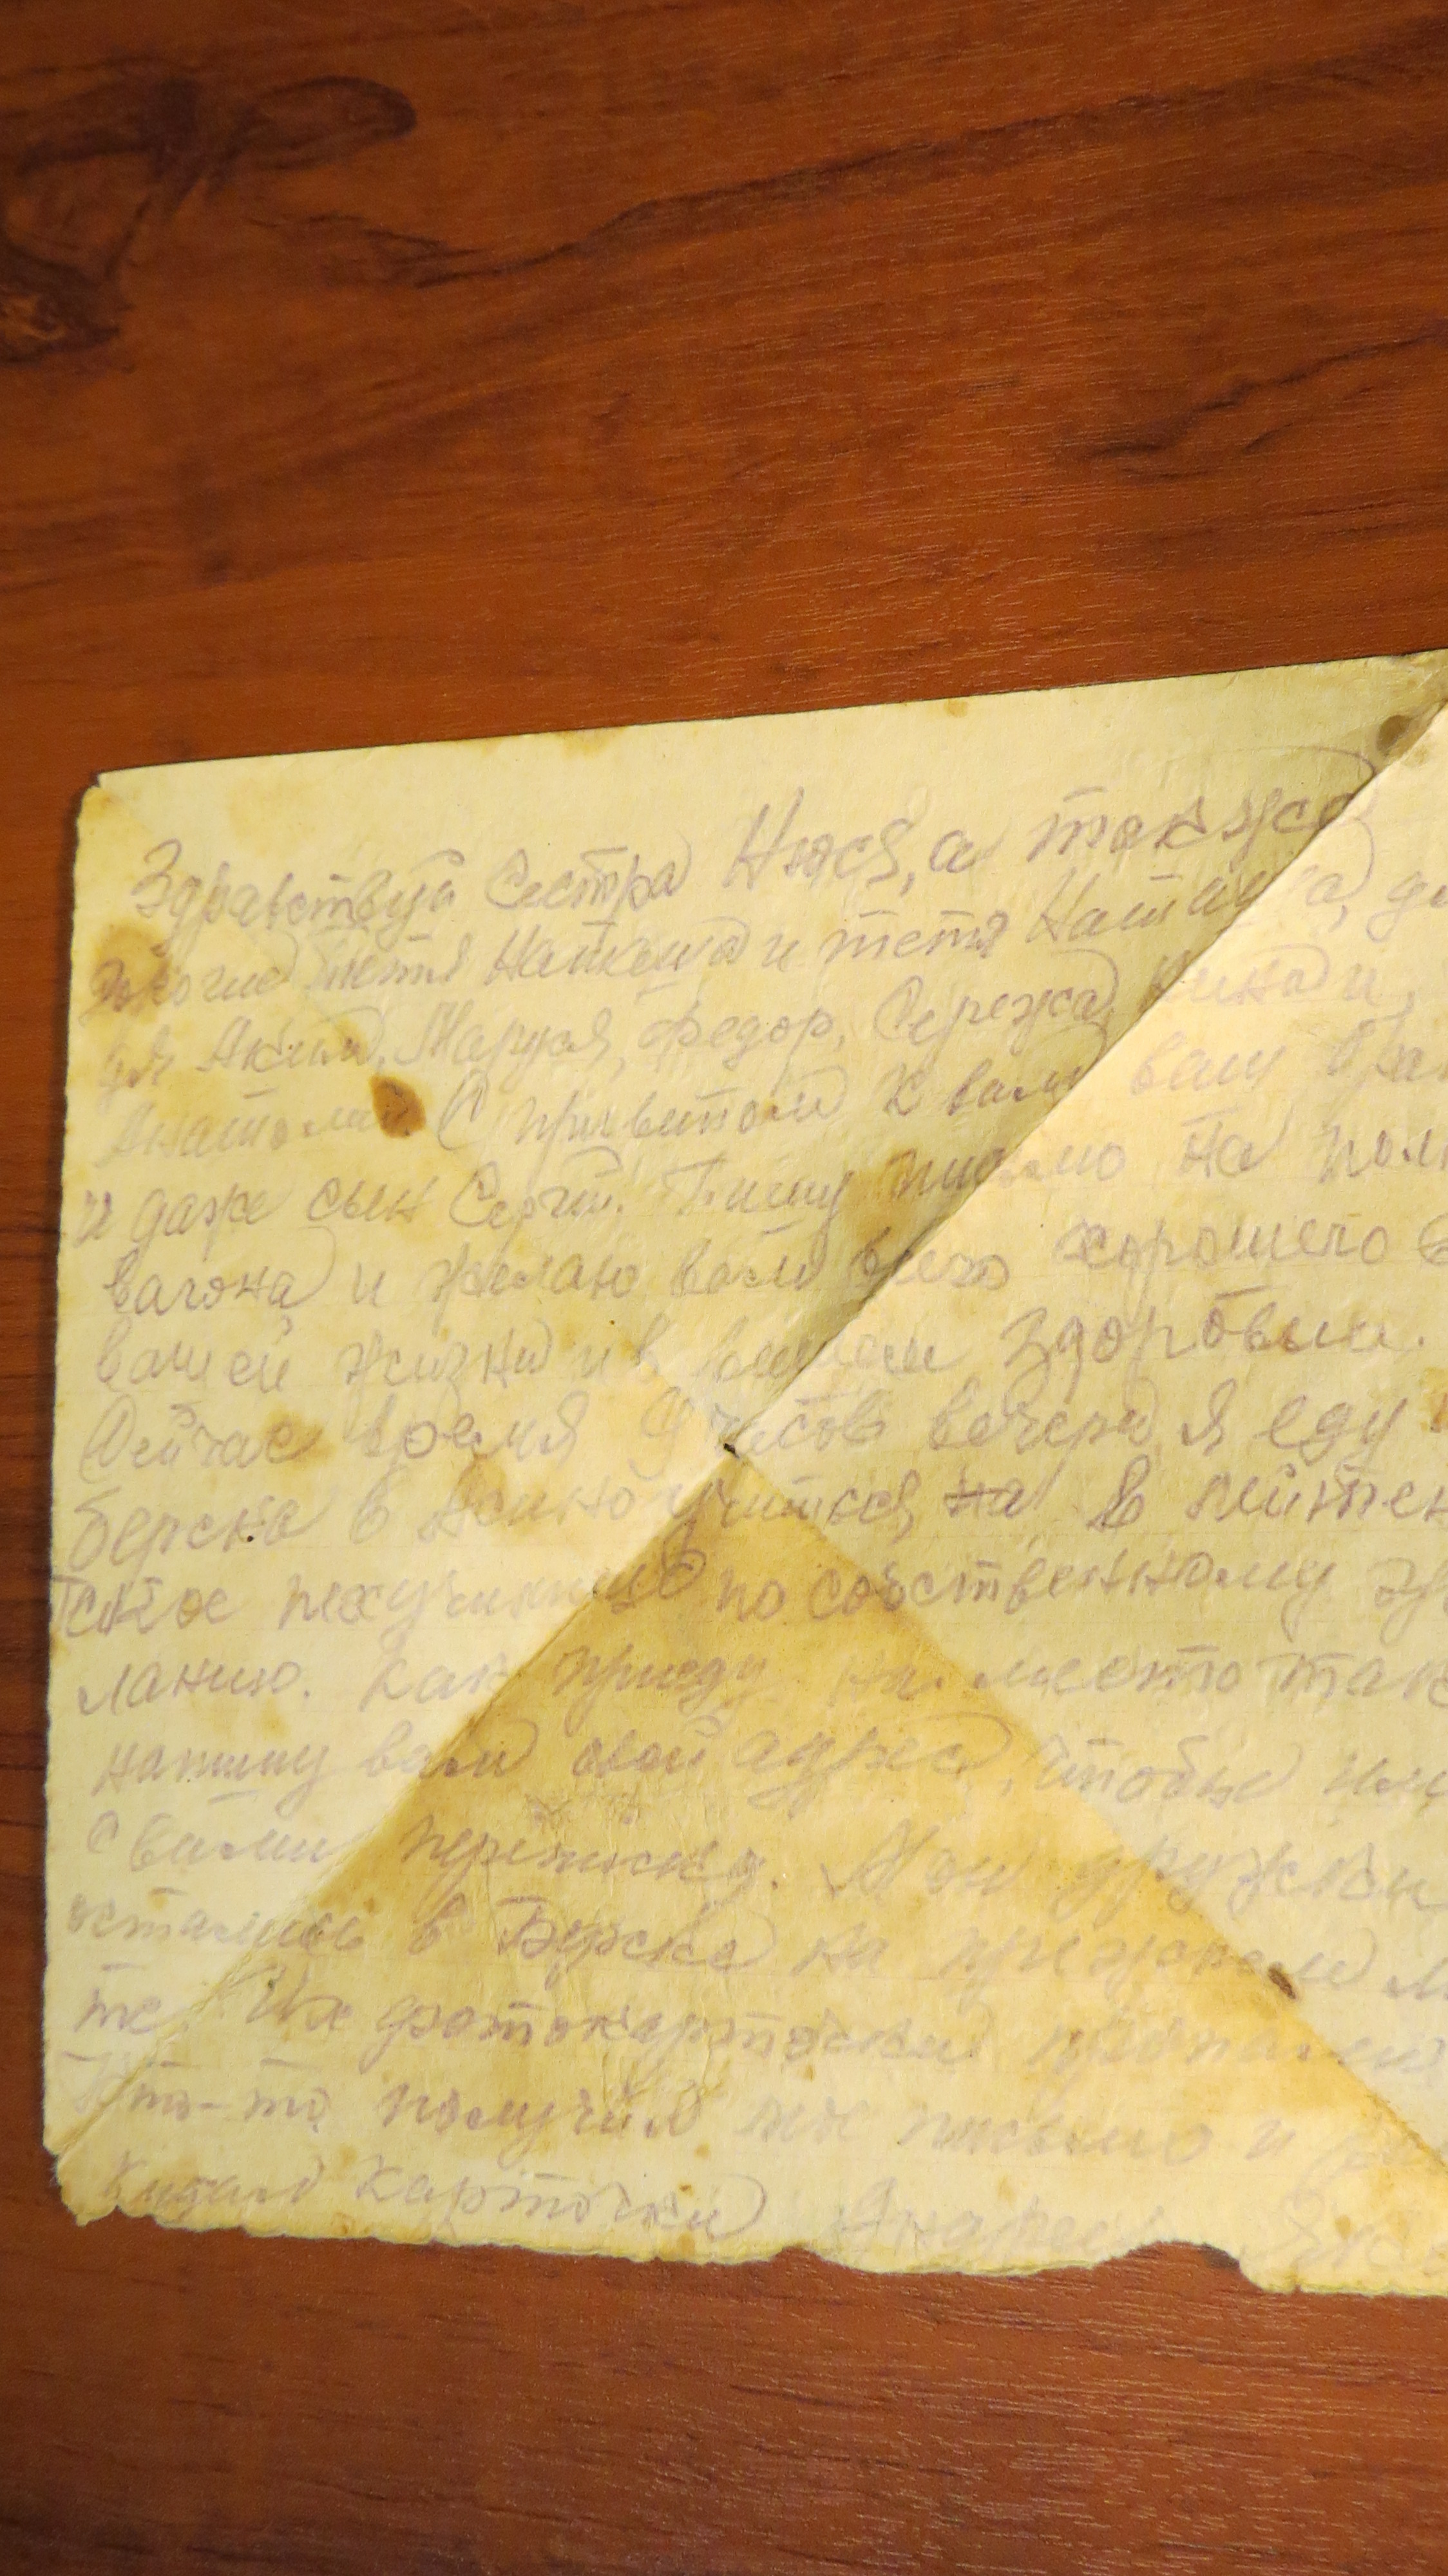 Здравствуй Сестра Нюся, а также
тетя Наташа и тетя Наташа, дя
дя Аким, Маруся, Федор, Сережа, Нина и
Анатолий. С приветом к вам ваш бра
и даже сын Сергей. Пишу письмо на пол
вагона и желаю вам всего хорошего в
вашей жизни и в вашем здоровьи.
Сейчас время 9 часов вечера я еду
Берска в учиться, на в лейтен
ское пехучилище по собственному же
ланию. Как приеду на место так
напишу вам свой адрес, чтобы им
с вами переписку. Мои дружки
остались в Берске на прежнем м
те. Их фотокарточки пропали
Кто-то получил мое письмо и
карточки